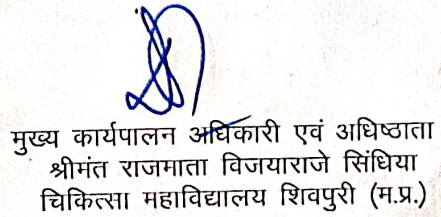 मुख्य कार्यपालन अधिकारी एवं अधिष्ठाता
श्रीमंत राजमाता विजयाराजे सिंधिया
चिकित्सा महाविद्यालय शिवपुरी (म.प्र.)